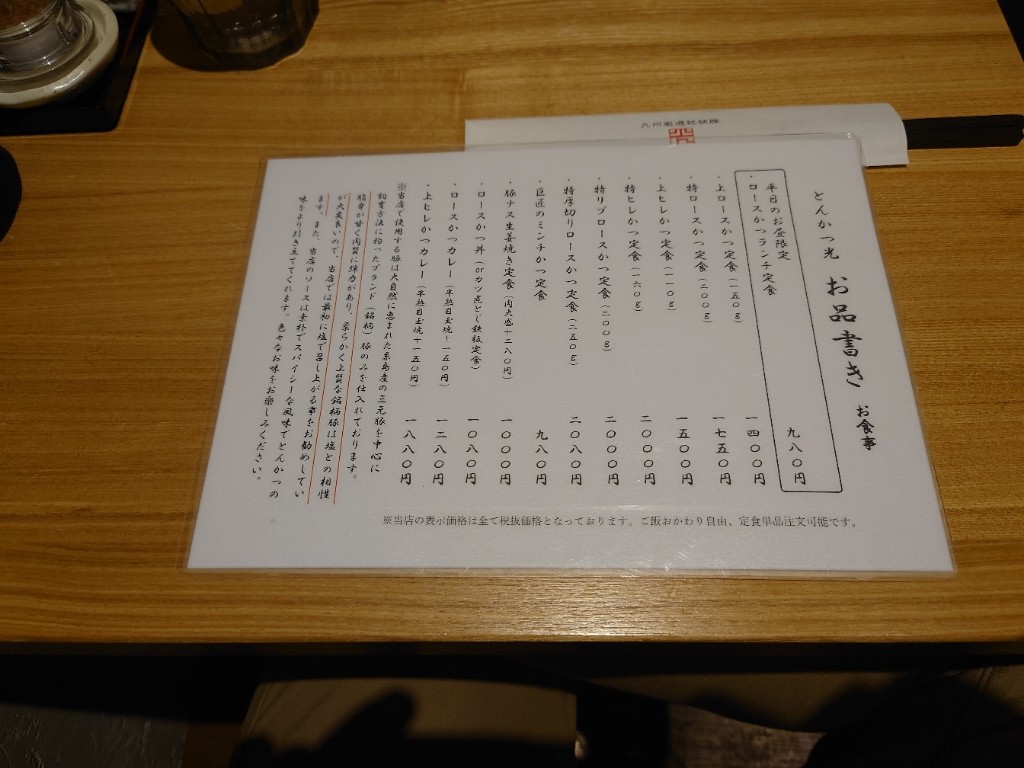 九州厳選銘柄豚
とんかつ光 お品書き お食事
平日のお昼限定
・ロースかつランチ定食 九八〇円
・上ロースかつ定食(一五〇g) 一四〇〇円
・特ロースかつ定食(二〇〇g) 一七五〇円
・上ヒレかつ定食(一一〇g) 一五〇〇円
・特ヒレかつ定食(一六〇g) 二〇〇〇円
・特リブロースかつ定食(二〇〇g) 二〇〇〇円
・特厚切りロースかつ定食(二五〇g) 二〇八〇円
・巨匠のミンチかつ定食 九八〇円
・豚ナス生姜焼き定食(肉大盛+二八〇円) 一〇〇〇円
・ロースかつ丼(orカツ煮とじ鉄板定食) 一〇八〇円
・ロースかつカレー(半熟目玉焼+一五〇円) 一二八〇円
・上ヒレかつカレー(半熟目玉焼+一五〇円) 一八八〇円
※当店で使用する豚は大自然に恵まれた糸島産の三元豚を中心に
飼育方法に拘ったブランド(銘柄)豚のみを仕入れております。
脂身が甘く肉質に弾力があり、柔らかく上質な銘柄豚は塩との相性
が大変良いので、当店では最初に塩で召し上がる事をお勧めしてい
ます。また、当店のソースは素朴でスパイシーな風味でとんかつの
味をより引き立ててくれます。色々なお味をお楽しみください。
※当店の表示価格は全て税抜価格となっております。ご飯おかわり自由、定食単品注文可能です。